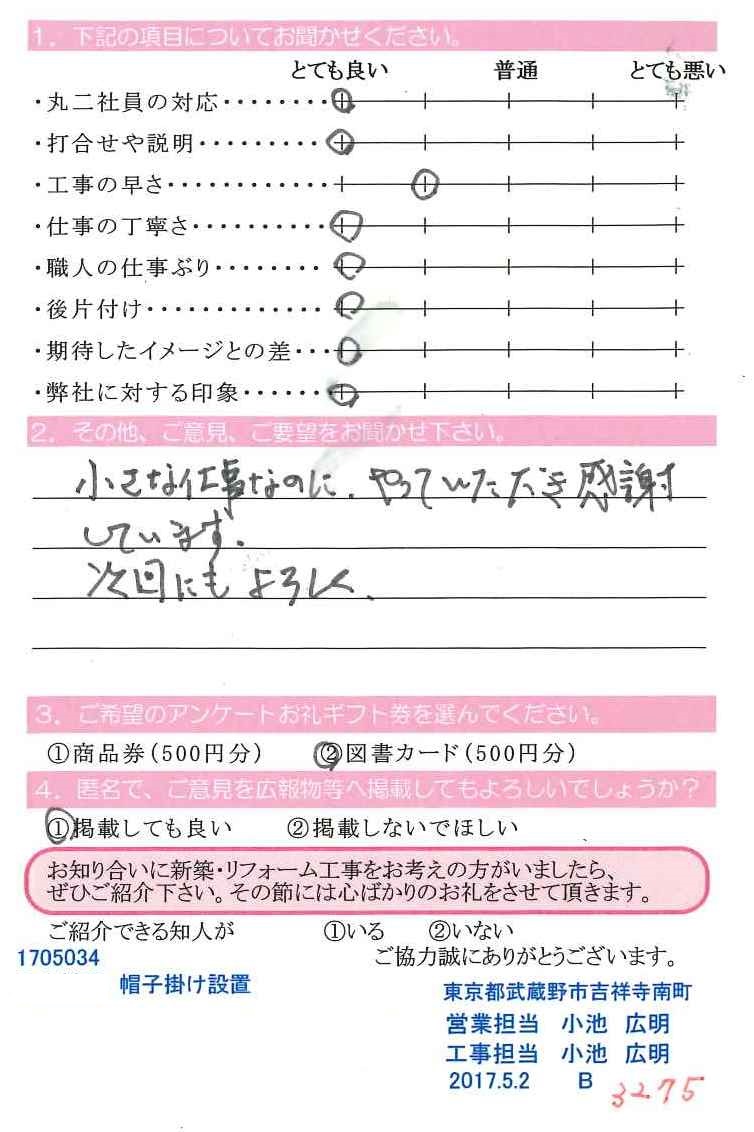 1. 下記の項目についてお聞かせください。
とても良い 普通 とても悪い
・丸二社員の対応・・・・・・・・
・打合せや説明・・・・・・・・・
・工事の早さ・・・・・・・・・・・・
・仕事の丁寧さ・・・・・・・・・・
・職人の仕事ぶり・・・・・・・・
・後片付け・・・・・・・・・・・・・
・期待したイメージとの差・・・
・弊社に対する印象・・・・・・・
2. その他、ご意見、ご要望をお聞かせ下さい。
小さな仕事なのに、やっていただき感謝
しています。
次回にもよろしく、
3. ご希望のアンケートお礼ギフト券を選んでください。
①商品券(500円分) ②図書カード(500円分)
4. 匿名で、ご意見を広報物等へ掲載してもよろしいでしょうか?
①掲載しても良い ②掲載しないでほしい
お知り合いに新築・リフォーム工事をお考えの方がいましたら、
ぜひご紹介下さい。その節には心ばかりのお礼をさせて頂きます。
ご紹介できる知人が ①いる ②いない
1705034 ご協力誠にありがとうございます。
帽子掛け設置 東京都武蔵野市吉祥寺南町
営業担当 小池 広明
工事担当 小池 広明
2017.5.2 B 3275